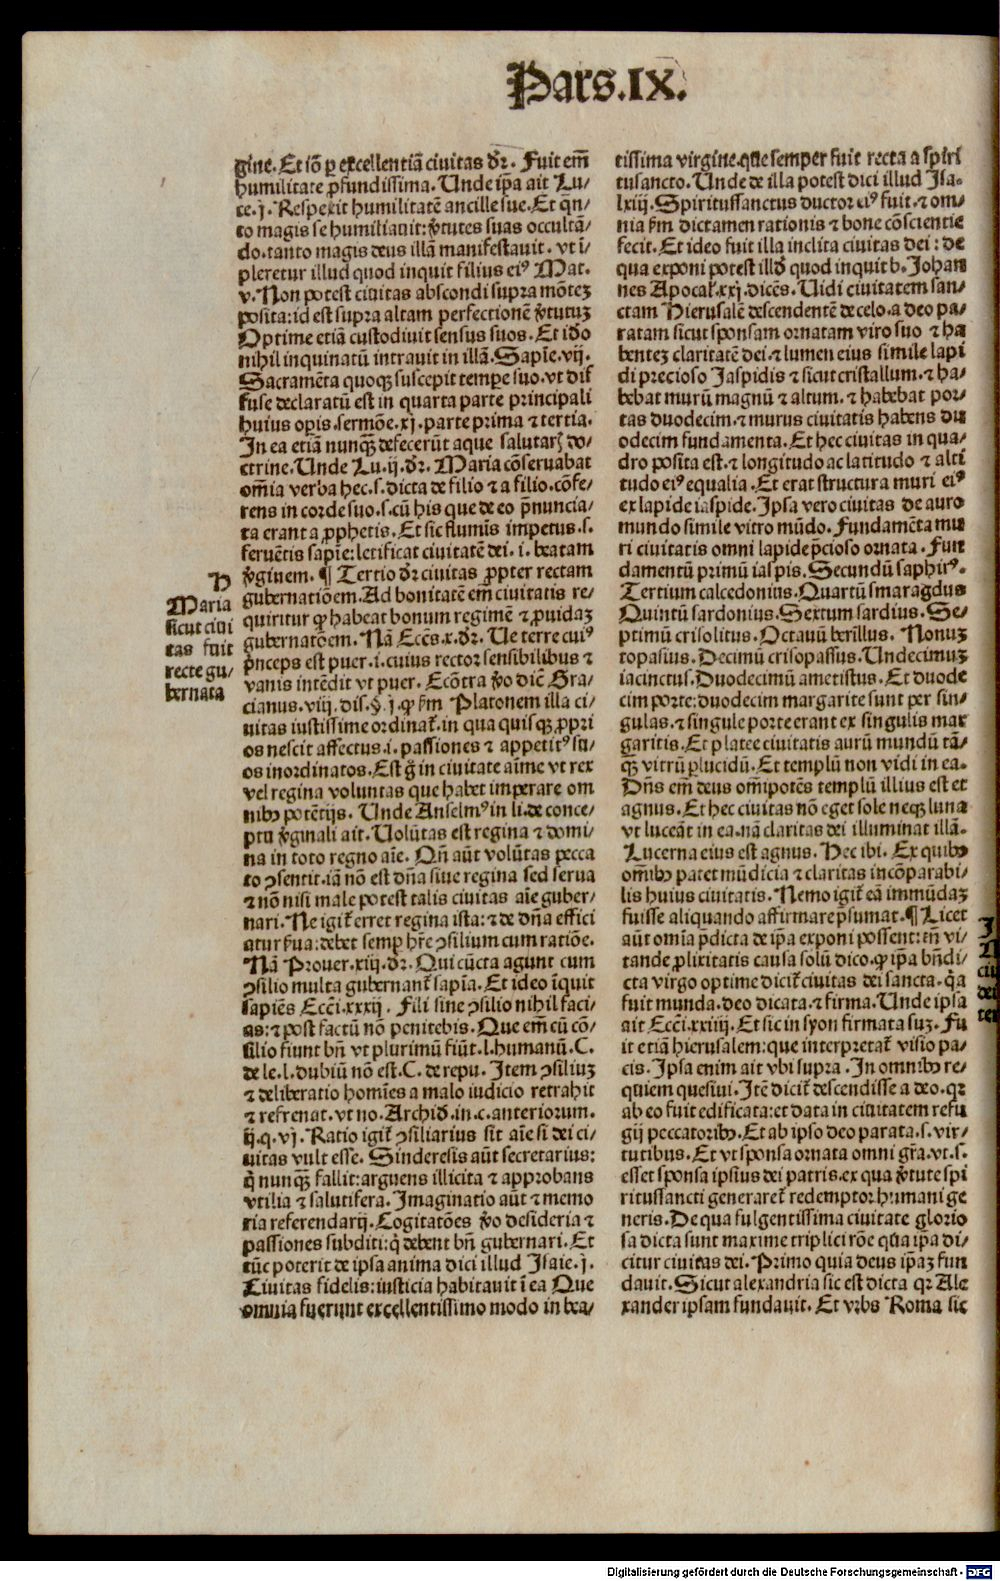 Pars.IX.
gine. Et iō ꝑ excellentiā civitas dr̄. Fuit em̄
humilitate ꝓfundissima. Unde ip̄a ait Lu/
ce.j. Respexit humilitatē ancille sue. Et q̄n/
to magis se humiliauit: v̓tutes suas occultā/
do. tanto magis deus illā manifestauit. vt ī/
pleretur illud quod inquit filius eiꝰ Mat.
v. Non potest ciuitas abscondi supra mōteꝫ
posita: id est supra altam perfectionē v̓tutuꝫ
Optime etiā custodiuit sensus suos. Et iđo
nihil inquinatū intrauit in illā. Sapīe.vij.
Sacramēta quoqꝫ suscepit temꝑe suo. vt dif
fuse declaratū est in quarta parte principali
huius opis. sermōe.xj. parte prima ⁊ tertia.
In ea etiā nunqꝫ̄ defecerūt aque salutarꝭ do/
ctrine. Unde Lu.ij.dr̄. Maria cōseruabat
om̄ia verba hec.s. dicta de filio ⁊ a filio. cōfe/
rens in corde suo.s. cū his que de eo p̄nuncia/
ta erant a ꝓphetis. Et sic flumīs impetus.s.
feruētis sapīe: letificat ciuitatē dei.i. beatam
v̓ginem. ¶ Tertio dr̄ ciuitas ꝓpter rectam
gubernatiōem. Ad bonitatē em̄ ciuitatis re/
quiritur ꝙ habeat bonum regimē ⁊ ꝓuidaꝫ
gubernatōem. Nā Ecc̄s.x.dr̄. Ue terre cuiꝰ
p̓nceps est puer.i. cuius rector sensibilibus ⁊
vanis intēdit vt puer. Ecōtra v̓o dic̄ Gra/
cianus.viij.dis.§.j. ꝙ ẜm Platonem illa ci/
uitas iustissime ordinat̄. in qua quisqꝫ ꝓpri
os nescit affectus.i. passiones ⁊ appetitꝰ su/
os inordinatos. Est g̊ in ciuitate aīme vt rex
vel regina voluntas que habet imperare om
nibꝰ potētijs. Unde Anselmꝰ in li. de conce/
ptu v̓ginali ait. Uolūtas est regina ⁊ domi/
na in toto regno aīe. Qn̄ aūt volūtas pecca
to ꝯsentit. iā nō est dn̄a siue regina sed serua
⁊ nō nisi male potest talis ciuitas aīe guber/
nari. Ne igit̄ erret regina ista: ⁊ de dn̄a effici
atur ẜua: debet semꝑ hr̄e ꝯsilium cum ratiōe.
Nā Prouer.xiij.dr̄. Qui cūcta agunt cum
ꝯsilio multa gubernant̄ sapīa. Et ideo īquit
sapiēs Ecc̄i.xxxij. Fili sine ꝯsilio nihil faci/
as: ⁊ post factū nō penitebis. Que em̄ cū cō/
silio fiunt bn̄ vt plurimū fiūt.l. humanū.C.
de le.l. dubiū nō est.C. de repu. Item ꝯsiliuꝫ
⁊ deliberatio homīes a malo iudicio retrahit
⁊ refrenat. vt no. Archiđ. in.c. anteriorum.
ij.q.vj. Ratio igit̄ ꝯsiliarius sit aīe si dei ci/
uitas vult esse. Sinderesis aūt secretarius:
q̄ nunqꝫ̄ fallit: arguens illicita ⁊ approbans
vtilia ⁊ salutifera. Imaginatio aūt ⁊ memo
ria referendarij. Cogitatōes v̓o desideria ⁊
passiones subditi: q̄ debent bn̄ gubernari. Et
tūc poterit de ipsa anima dici illud Isaie.j.
Ciuitas fidelis: iusticia habitauit ī ea Que
omnia fuerunt excellentissimo modo in bea/
D
Maria
sicut ciui
tas fuit
recte gu/
bernata
tissima virgine. que semper fuit recta a spiri
tusancto. Unde de illa potest dici illud Isa.
lxiij. Spiritussanctus ductor eiꝰ fuit. ⁊ om/
nia ẜm dictamen rationis ⁊ bone cōscientie
fecit. Et ideo fuit illa inclita ciuitas dei: de
qua exponi potest illđ quod inquit b. Johan
nes Apocal̄.xxj. dicēs. Uidi ciuitatem san/
ctam Hierusalē descendentē de celo. a deo pa/
ratam sicut sponsam ornatam viro suo ⁊ ha
benteꝫ claritatē dei. ⁊ lumen eius simile lapi
di precioso Jaspidis ⁊ sicut cristallum. ⁊ ha/
bebat murū magnū ⁊ altum. ⁊ habebat por/
tas duodecim. ⁊ murus ciuitatis habens du
odecim fundamenta. Et hec ciuitas in qua/
dro posita est. ⁊ longitudo ac latitudo ⁊ alti
tudo eiꝰ equalia. Et erat structura muri eiꝰ
ex lapide iaspide. Ipsa vero ciuitas de auro
mundo simile vitro mūdo. Fundamēta mu
ri ciuitatis omni lapide p̄cioso ornata. Fun
damentū primū iaspis. Secundū saphirꝰ.
Tertium calcedonius. Quartū smaragdus
Quintū sardonius. Sextum sardius. Se/
ptimū crisolitus. Octauū berillus. Nonuꝫ
topasius. Decimū crisopassus. Undecimuꝫ
iacinctus. Duodecimū ametistus. Et duode
cim porte: duodecim margarite sunt per sin/
gulas. ⁊ singule porte erant ex singulis mar
garitis. Et platee ciuitatis aurū mundū tā/
qꝫ̄ vitrū ꝑlucidū. Et templū non vidi in ea.
Dn̄s em̄ deus om̄ipotēs templū illius est et
agnus. Et hec ciuitas nō eget sole neqꝫ luna
vt luceāt in ea. nā claritas dei illuminat illā.
Lucerna eius est agnus. Hec ibi. Ex quibꝰ
om̄ibꝰ patet mūdicia ⁊ claritas incōparabi/
lis huius ciuitatis. Nemo igit̄ eā immūdaꝫ
fuisse aliquando affirmare p̄sumat. ¶ Licet
aūt om̄ia p̄dicta de ip̄a exponi possent: tn̄ vi/
tande ꝓlixitatis causa solū dico. ꝙ ip̄a bn̄di/
cta virgo optime dicit̄ ciuitas dei sancta. q̄a
fuit munda. deo dicata. ⁊ firma. Unde ipsa
ait Ecc̄i.xxiiij. Et sic in syon firmata suꝫ. Fu
it etiā hierusalem: que interpretat̄ visio pa/
cis. Ipsa enim ait vbi supra. In omnibꝰ re/
quiem quesiui. Itē dicit̄ descendisse a deo. qꝛ
ab eo fuit edificata: et data in ciuitatem refu
gij peccatoribꝰ. Et ab ipso deo parata.s. vir/
tutibus. Et vt sponsa ornata omni gr̄a. vt.s.
esset sponsa ipsius dei patris. ex qua v̓tute spi
ritussancti generaret̄ redemptor humani ge
neris. De qua fulgentissima ciuitate glorio
sa dicta sunt maxime triplici rōe qua ip̄a di/
citur ciuitas dei. Primo quia deus ip̄aꝫ fun
dauit. Sicut alexandria sic est dicta qꝛ Ale
xander ipsam fundauit. Et vrbs Roma sic
Digitalisierung gefördert durch die Deutsche Forschungsgemeinschaft - DFG